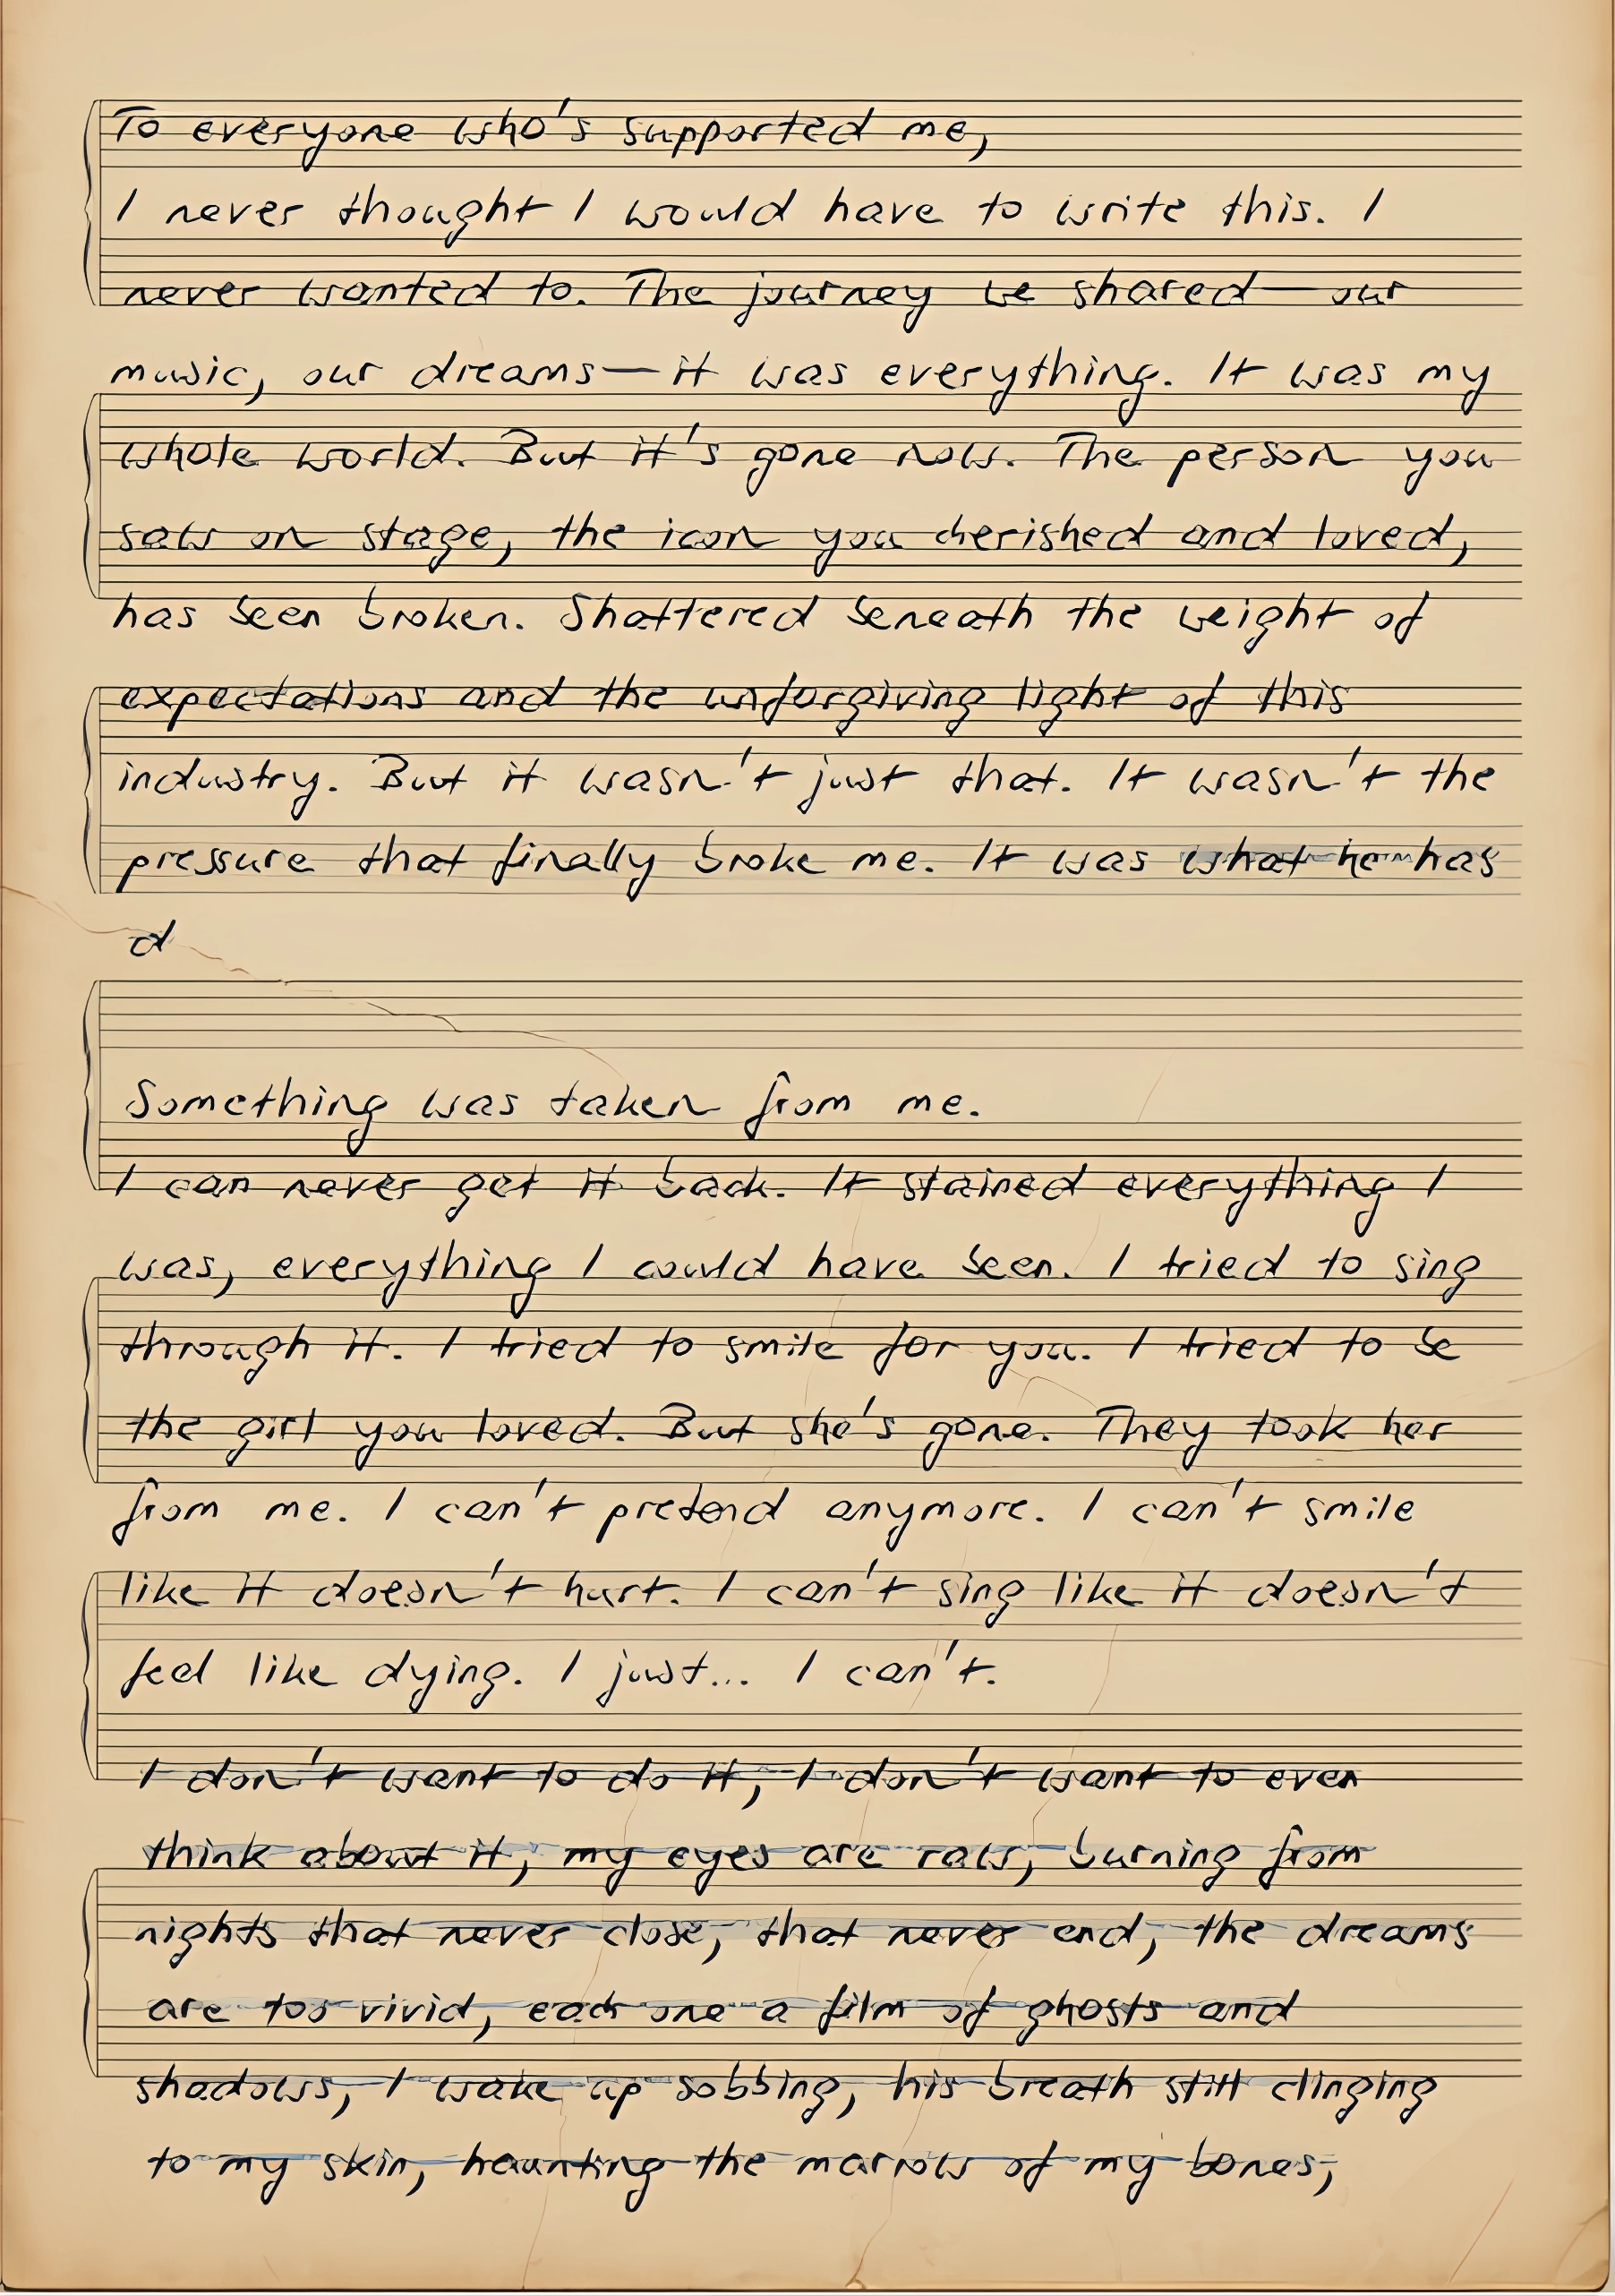 To everyone who's supported me,
I never thought I would have to write this. I
never wanted to. The journey we shared—our
music, our dreams—it was everything. It was my
whole world. But it's gone now. The person you
saw on stage, the icon you cherished and loved,
has been broken. Shattered beneath the weight of
expectations and the unforgiving light of this
industry. But it wasn't just that. It wasn't the
pressure that finally broke me. It was what he has
d
Something was taken from me.
I can never get it back. It stained everything I
was, everything I could have been. I tried to sing
through it. I tried to smile for you. I tried to be
the girl you loved. But she's gone. They took her
from me. I can't pretend anymore. I can't smile
like it doesn't hurt. I can't sing like it doesn't
feel like dying. I just... I can't.
I don't want to do it, I don't want to even
think about it, my eyes are raw, burning from
nights that never close, that never end, the dreams
are too vivid, each one a film of ghosts and
shadows, I wake up sobbing, his breath still clinging
to my skin, haunting the marrow of my bones,